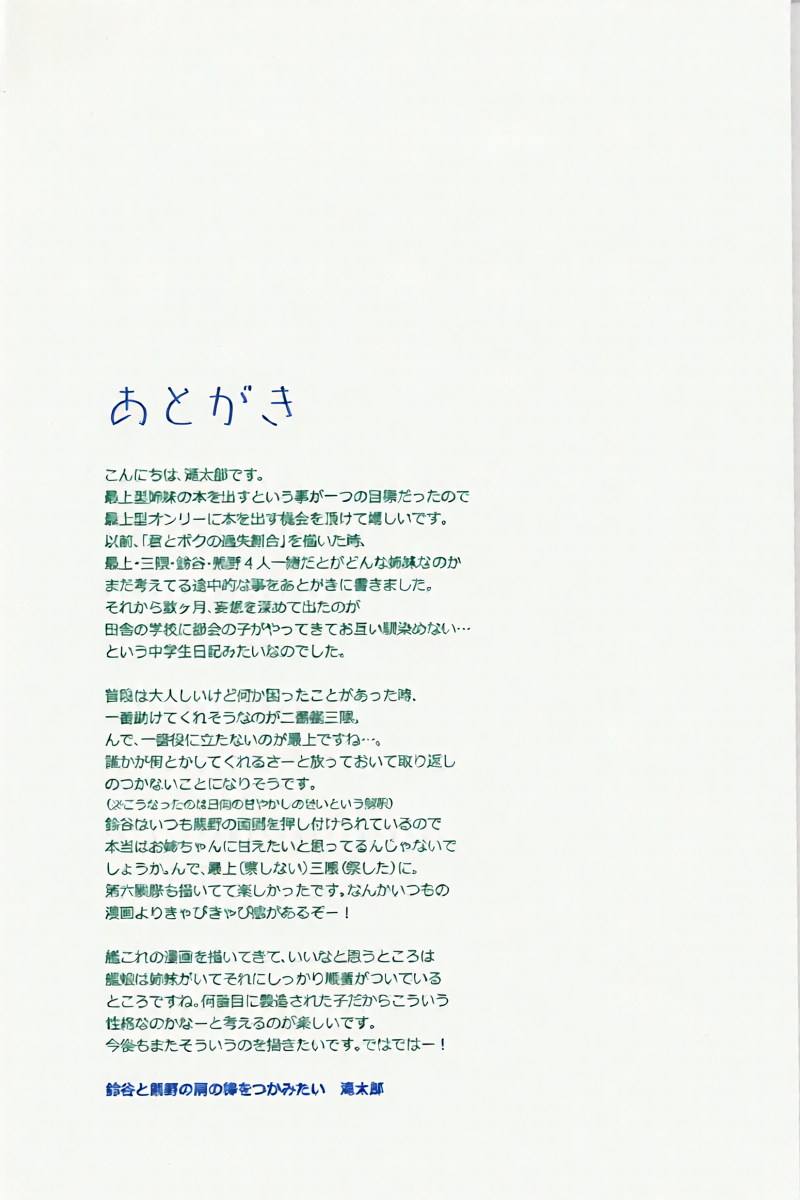 あとがき
こんにちは、滝太郎です。
最上型姉妹の本を出すという事が一つの目標だったので
最上型オンリーに本を出す機会を頂けて嬉しいです。
以前、「君とボクの過失割合」を描いた時、
最上・三隈・鈴谷・熊野4人一緒だとがどんな姉妹なのか
まだ考えてる途中的な事をあとがきに書きました。
それから数ヶ月、妄想を深めて出たのが
田舎の学校に都会の子がやってきてお互い馴染めない…
という中学生日記みたいなのでした。
普段は大人しいけど何か困ったことがあった時、
一番助けてくれそうなのが二番艦三隈。
んで、一番役に立たないのが最上ですね…。
誰かが何とかしてくれるさーと放っておいて取り返し
のつかないことになりそうです。
(※こうなったのは日向の甘やかしのせいという解釈)
鈴谷はいつも熊野の面倒を押し付けられているので
本当はお姉ちゃんに甘えたいと思ってるんじゃないで
しょうか。んで、最上(察しない)三隈(察した)に。
第六駆隊も描いてて楽しかったです。なんかいつもの
漫画よりきゃぴきゃぴ感があるぞー！
艦これの漫画を描いてきて、いいなと思うところは
艦娘は姉妹がいてそれにしっかり順番がついている
ところですね。何番目に製造された子だからこういう
性格なのかなーと考えるのが楽しいです。
今後もまたそういうのを描きたいです。ではではー！
鈴谷と熊野の肩のをつかみたい　滝太郎